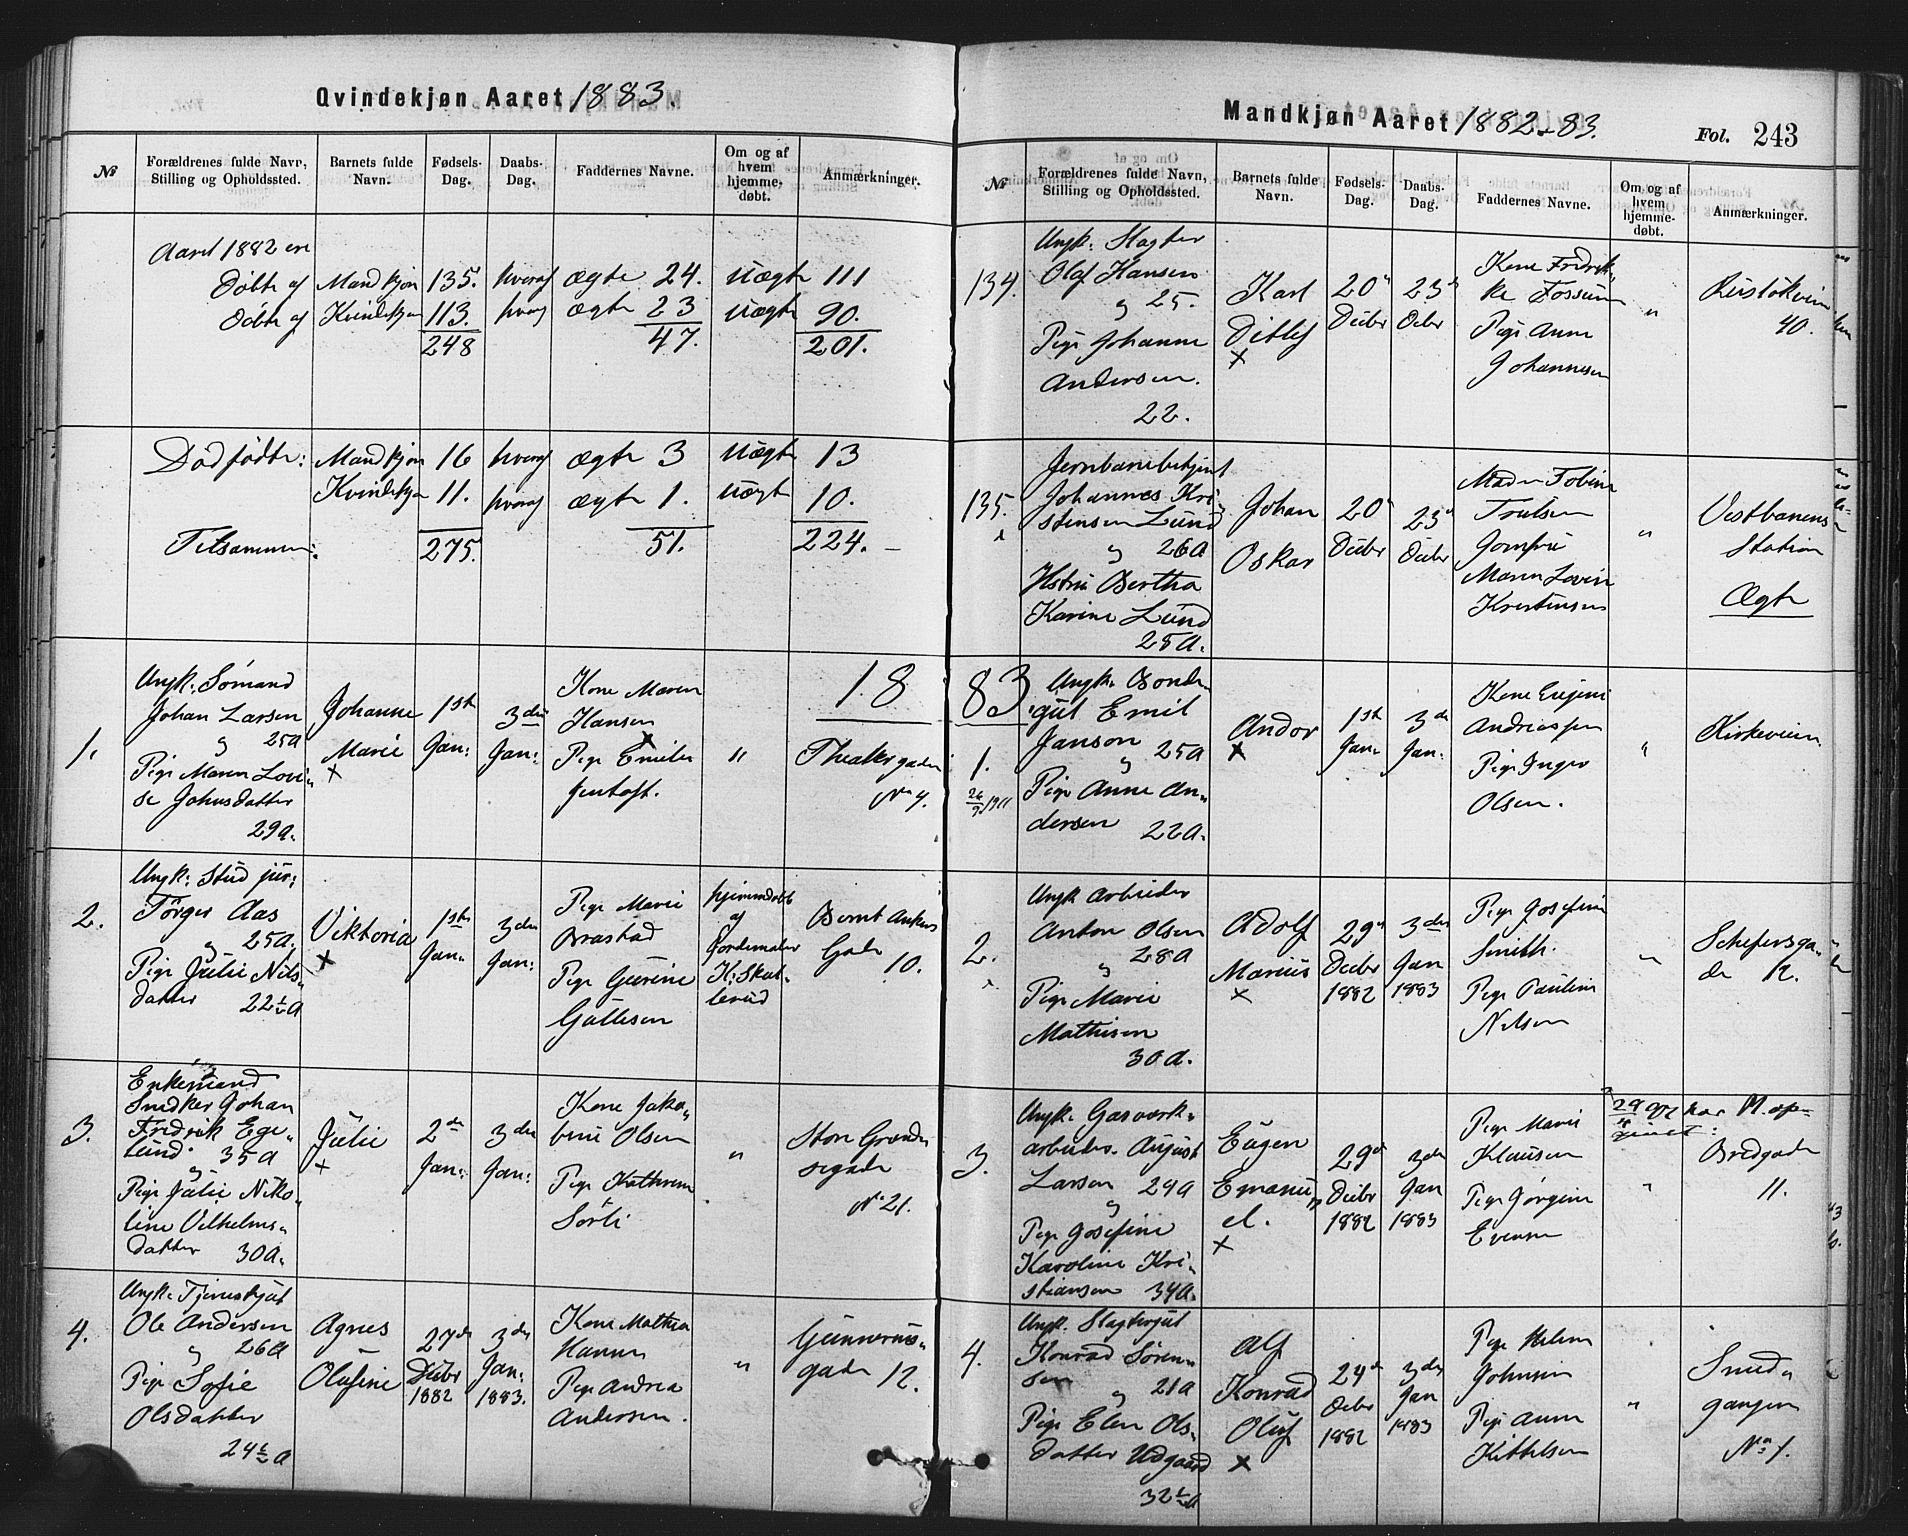 Qvindekjøn Aaret 1883.
№
Forældrenes fulde Navn,
Stilling og Opholdssted.
Barnets fulde
Navn.
Fødsels-
Dag.
Daabs-
Dag.
Faddernes Navne.
Om og af
hvem
hjemme-
døbt.
Anmærkninger.
Aaret 1882 ere
Døbte af Mandkjøn 135. hveraf ægte 24. uægte 111
Døbte af Kvindekjøn 113. hveraf ægte 23 uægte 90.
248 47. 201.
Dødfødte: Mandkjøn 16 hveraf ægte 3 uægte 13
Kvindekjøn 11. hveraf ægte 1. uægte 10.
Tilsammen: 275. 51. 224.
18
1.
Ungk: Sømand
Johan Larsen
og 25 A
Pige Maren Lovi-
se Johnsdatter
29 a.
Johanne
Marie
×
1ste
Jan:
3die
Jan:
Kone Maren
Hansen
Pige Emilie
Jentoft.
"
Theatergaden
No 4.
2.
Ungk: Stud jur:
Törger Aas
og 25 a.
Pige Julie Nils-
datter 22½ a
Viktoria
×
1ste
Jan.
3die
Jan:
Pige Marie
Braastad
Pige Gurine
Gullesen
hjemmedøbt
af
Jordemoder
K: Skol-
Bernt Ankers
Gade
10.
3.
Enkemand
Snedker Johan
Fredrik Ege-
lund. 35 a
og
Pige Julie Niko-
line Vilhelms-
datter 30 a.
Julie
×
2den
Jan:
3die
Jan:
Kone Jako-
bine Olsen
Pige Kathrine
Sörli
"
Store Grænd-
segade
No 21.
4.
Ungk. Tjenestkjul
Ole Andersen
og 26 A
Pige Sofie
Olsdatter
24½ a
Agnes
Olufine
27de
Decbr
1882
3die
Jan:
1883.
Kone Mathea
Hansen
Pige Andrea
Andersen.
"
Gunnerius-
gade 12.
Mandkjøn Aaret 1882-83.
Fol. 243
№
Forældrenes fulde Navn,
Stilling og Opholdssted.
Barnets fulde
Navn.
Fødsels-
Dag.
Daabs-
Dag.
Faddernes Navne.
Om og af
hvem
hjemme-
døbt.
Anmærkninger.
134.
Ungk: Slagter
Olaf Hansen
og 25.
Pige Johanne
Andersen.
22.
Karl
Ditlef
×
20de
Decbr
23de
Decbr
Kone Fredrik-
ke Fossum
Pige Anne
Johannesen
"
40.
135.
Jernbanebetjent
Johannes Kri-
stensen Lund
og 26 a
Hstru Bertha
Karine Lund
25 a.
Johan
Oskar
20de
Decbr
23de
Decbr
Mad. Tobine
Trulsen
Jomfru
Maren Lovise
Kristensen
"
Vestbanens
Station
Ægte
83
1.
26/9 1911
Ungk. Bonde-
gut Emil
Janson
og 25 a
Pige Anne An-
dersen 22 a.
Andor
×
1ste
Jan.
3die
Jan.
Kone Eugeni
Andreassen
Pige Inger
Olsen.
"
Kirkeveien
2.
Ungk Arbeider
Anton Olsen
og 28 a
Pige Marie
Mathisen
30 a.
Adolf
Marius
×
29de
Decbr
1882
3die
Jan
1883
Pige Josefine
Smith.
Pige Pauline
Nilsen
"
Schefersga-
de 12.
3.
Ungk. Gasverk-
arbeider. August
Larsen 29 a
og
Pige Josefine
Karoline Kri-
stiansen 34 a.
Eugen
Emanu-
el.
×
29de
Decbr
1882
3die
Jan
1883
Pige Marie
Klausen
Pige Jørgine
Evensen
"
Bredgade
11.
4.
Ungk. Slagtergut
Konrad Sören-
sen
og 21 a
Pige Elen Ols-
datter Udgaard
32½ a
Alf
Konrad
Oluf
×
24de
Decbr
1882
3die
Jan
1883
Pige Helene
Johnsen
Pige Anne
Kittelsen
"
Smed-
gangen
No 1.